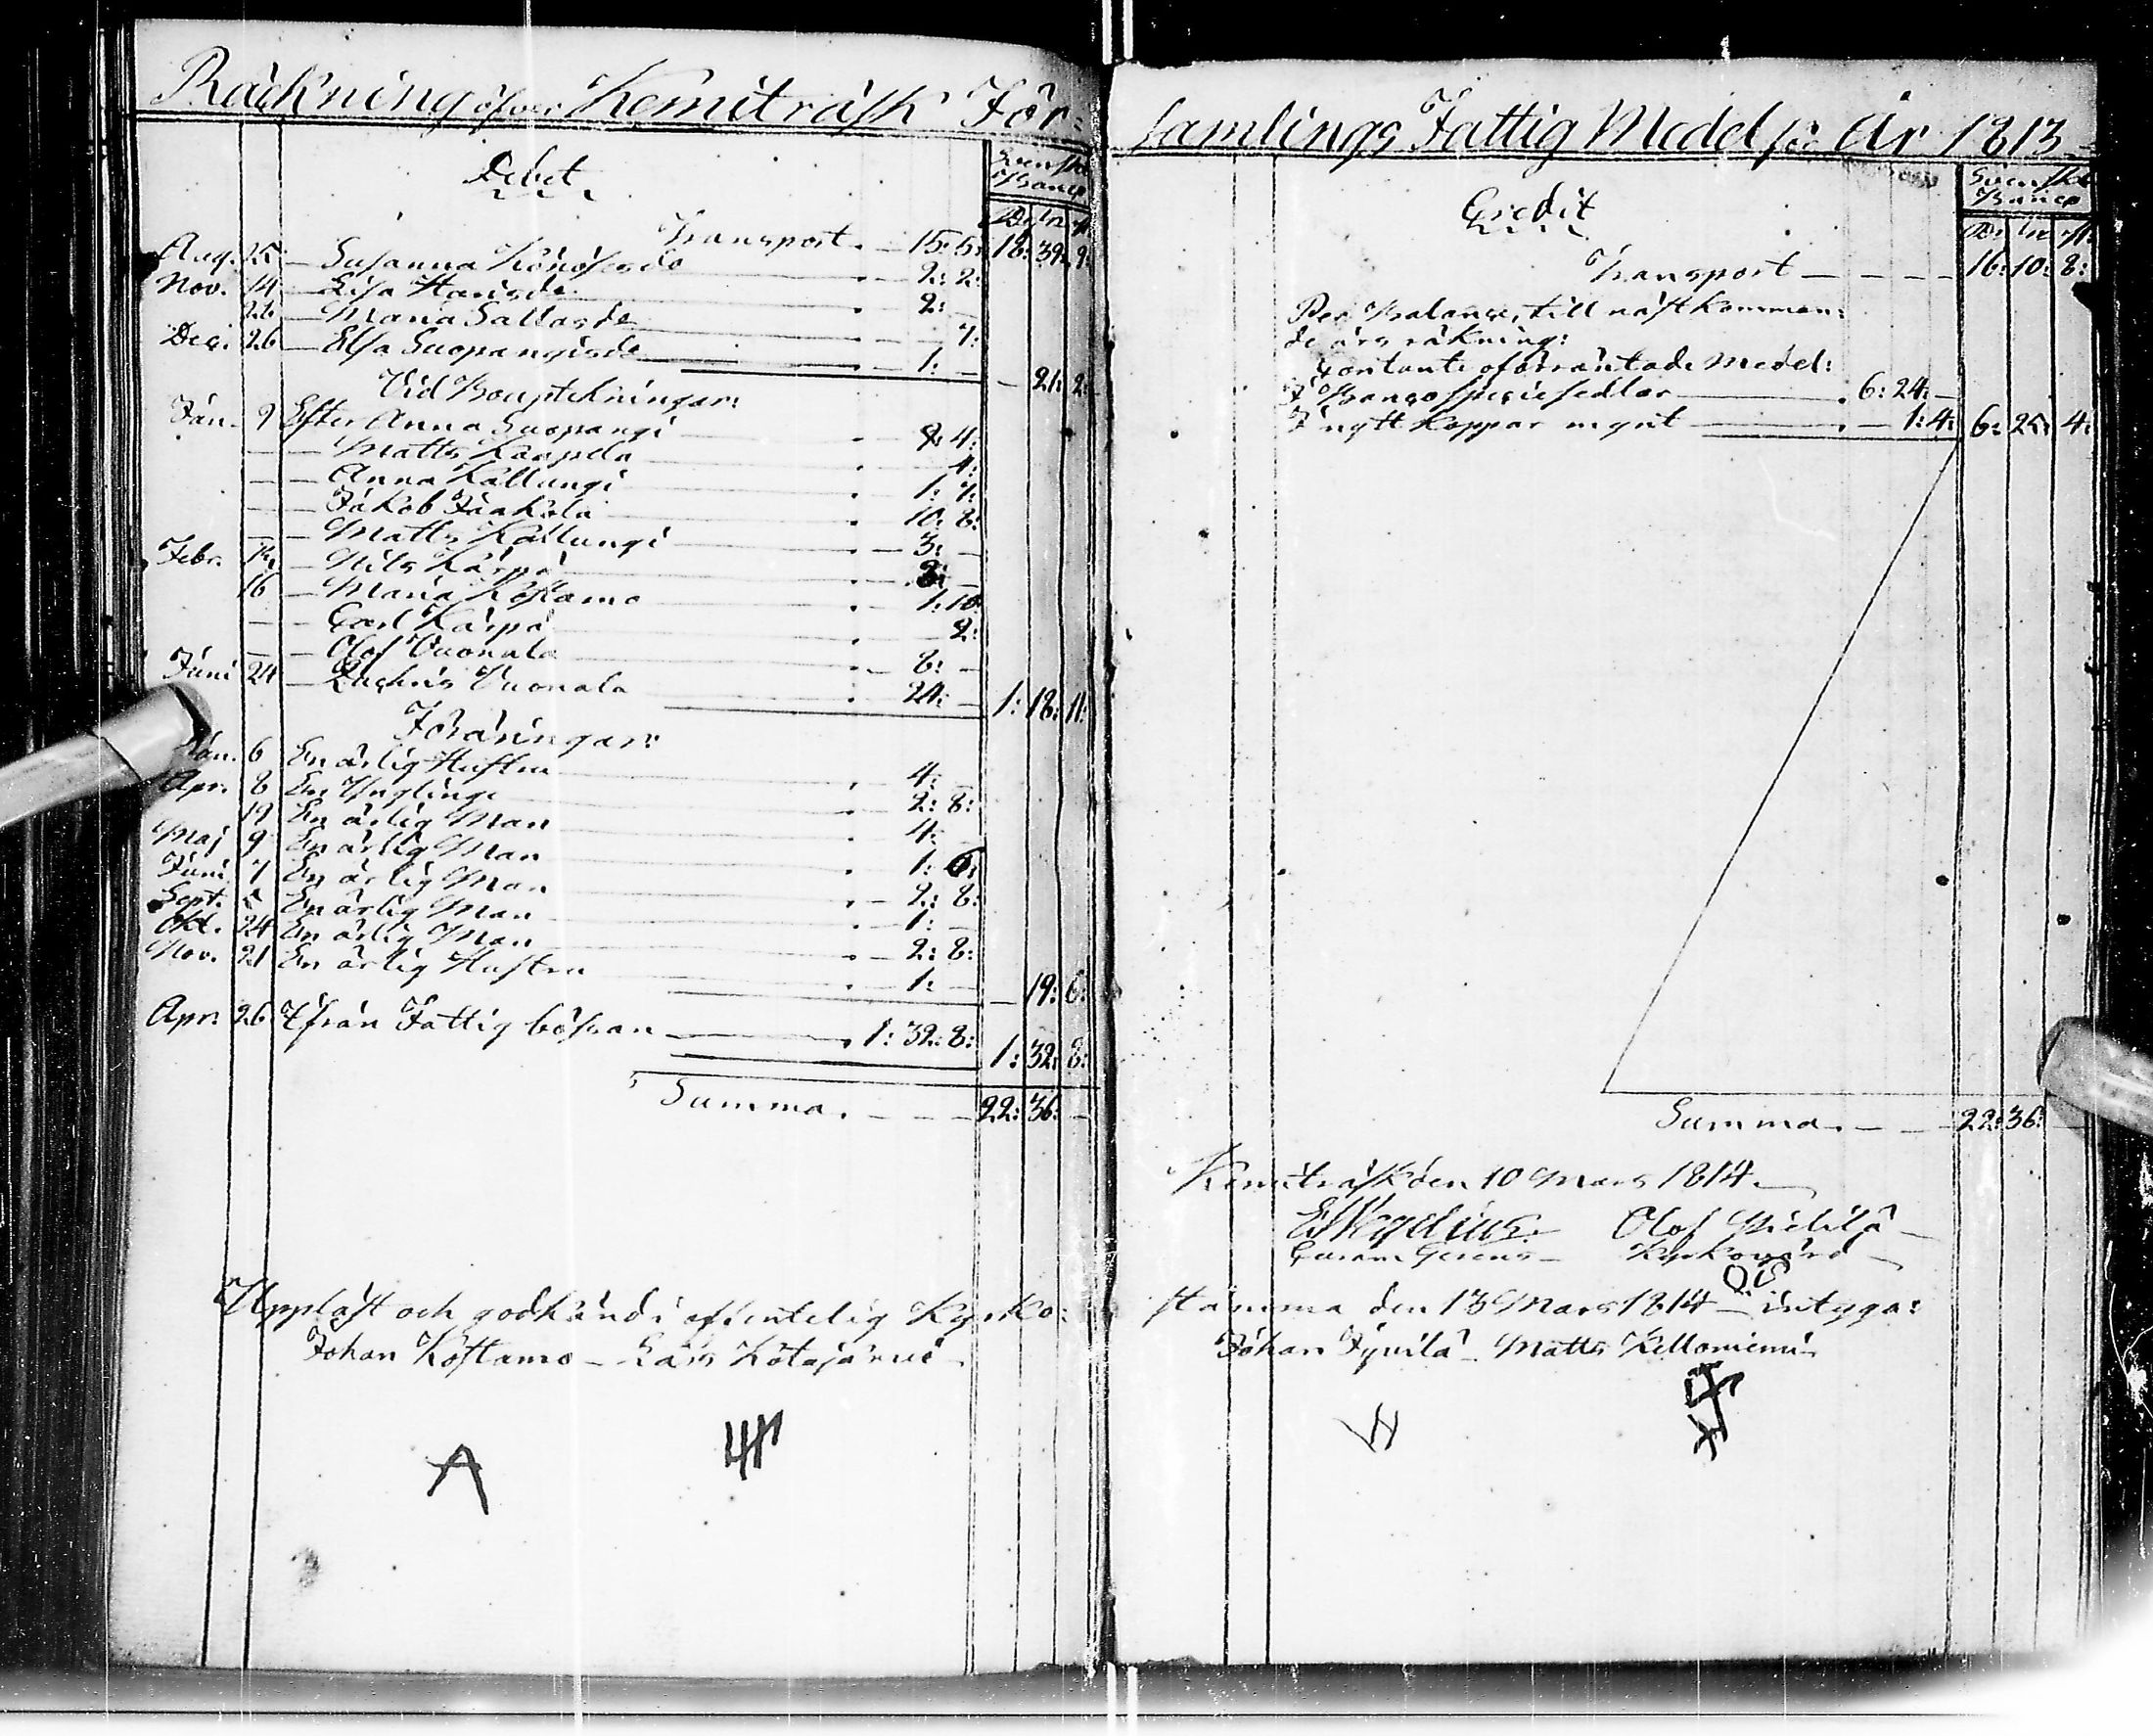 Räkning öfver Kemiträsk För-
Debet
Svenska
Banco
Rdr sk. r.
Transport. — 15: 5: 18: 39: 9:
Aug. 25 — Susanna — 2: 2:
Nov. 14 — Lisa — 2: —
22 — Maria Sallasde — 7:
Dec. 26 — Elsa Suopangisde — 1: — — 21: 2:
Vid Bouptekningar:
Jan. 9 Efter Anna Suopangi 8: 4:
— — Matts Karpela 4:
— — Anna Kallungi 1: 7:
— — Jakob Jaakola 10: 8:
— — Matts Kallungi — 3: —
Febr. 14 — Nils Kärpä — 8: —
16 — Maria Kostamo 1: 10:
— — Carl Kärpä 2:
— — Olof Vuonala — 8: —
Juni 24 — Zachris Vuonala 24: — 1: 18: 11:
Föräringar:
Jan. 6 En ärlig Hustru — 4: —
Apr. 8 En Yngling — 2: 8:
19 En ärlig Man — 4: —
Maj 9 En ärlig Man 1: 6:
Juni 7 En ärlig Man — 2: 8:
Sept. 5 En ärlig Man — 1: —
Okt. 24 En ärlig Man — 2: 8:
Nov. 21 En ärlig Hustru — 1: — — 19: 6:
Apr. 26 Ifrån Fattig bössan 1: 32: 8: 1: 32: 8:
Summa. — — — 22: 36: —
Uppläst och godkänd i offentelig Kyrko:
Johan Kostamo — Lars Kotajärvi
samlings Fattig Medel för År 1813
Credit
Svenska
Banco
Rdr sk. r.
Transport — — — — 16: 10: 8:
Per Balance, till nästkomman:
de års räkning:
Contante oförräntade Medel:
I Banco speciesedlar 6: 24: —
I nytt koppar mynt — 1: 4: 6: 25: 4:
Summa. — — 22: 36: —
Kemiträsk den 10 Mars 1814.
Olof
Kyrkovärd
stämma den 13 Mars 1814 — intyga:
Johan Jyvilä — Matts Kelloniemi